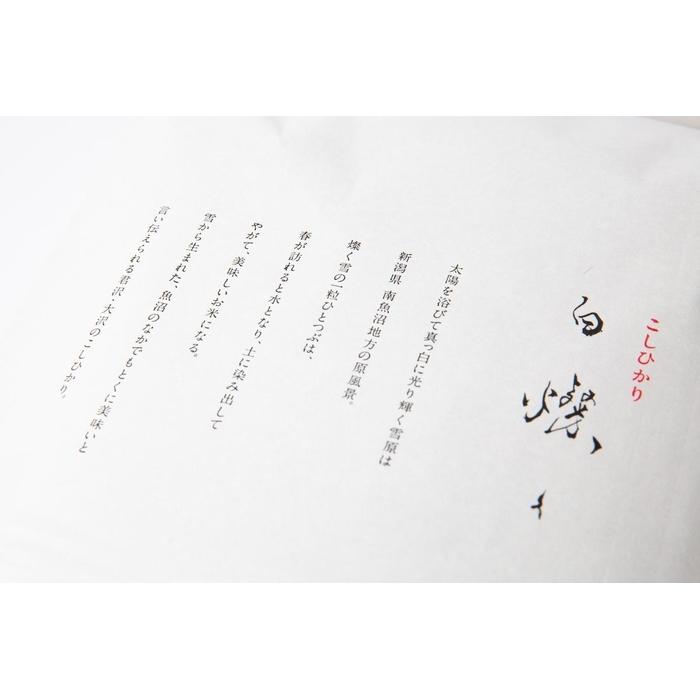 こしひかり
白燦く
太陽を浴びて真っ白に光り輝く雪原は
新潟県 南魚沼地方の原風景。
燦く雪の一粒ひとつぶは、
春が訪れると水となり、土に染み出して
やがて、美味しいお米になる。
雪から生まれた、魚沼のなかでもとくに美味いと
言い伝えられる君沢・大沢のこしひかり。